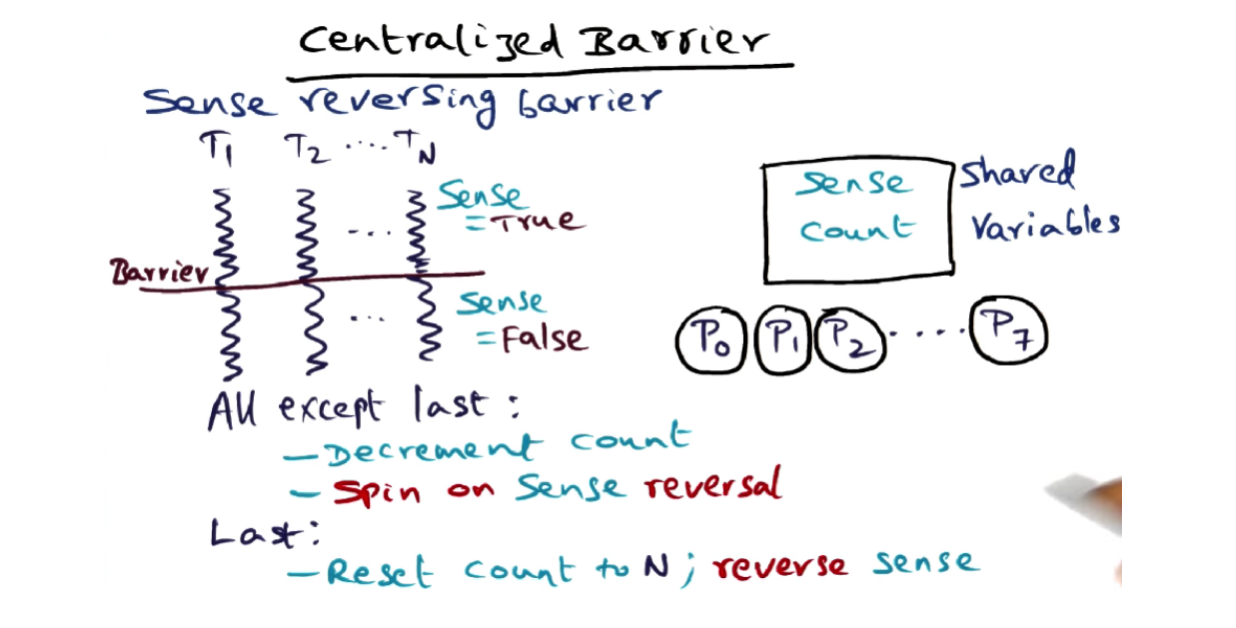 Centralized Barrier
Sense reversing barrier
T1 T2 .... TN
Sense
= True
...
Barrier
Sense
= False
...
Sense
count
Shared
Variables
P0 P1 P2 ..... P7
All except last :
– Decrement count
– Spin on Sense reversal
Last:
– Reset count to N ; reverse sense